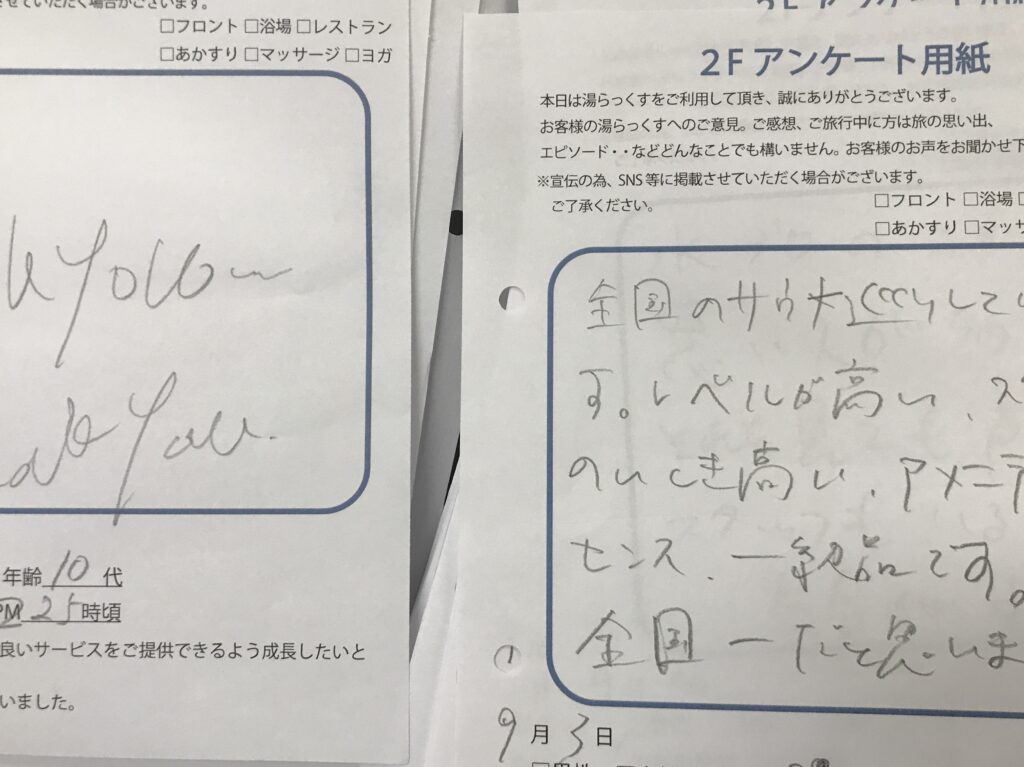 せていただく場合がございます。
□フロント □浴場 □レストラン
□あかすり □マッサージ □ヨガ
k You
You.
年齢 10 代
PM 25 時頃
良いサービスをご提供できるよう成長したいと
いました。
2F アンケート用紙
本日は湯らっくすをご利用して頂き、誠にありがとうございます。
お客様の湯らっくすへのご意見。ご感想、ご旅行中に方は旅の思い出、
エピソード・・などどんなことでも構いません。お客様のお声をお聞かせ下
※宣伝の為、SNS 等に掲載させていただく場合がございます。
ご了承ください。
□フロント □浴場
□あかすり □マッサ
全国のサウナ巡りして
す。レベルが高い、ス
のいしき高い、アメニテ
センス、一級品です。
全国一だと思いま
9 月 3 日